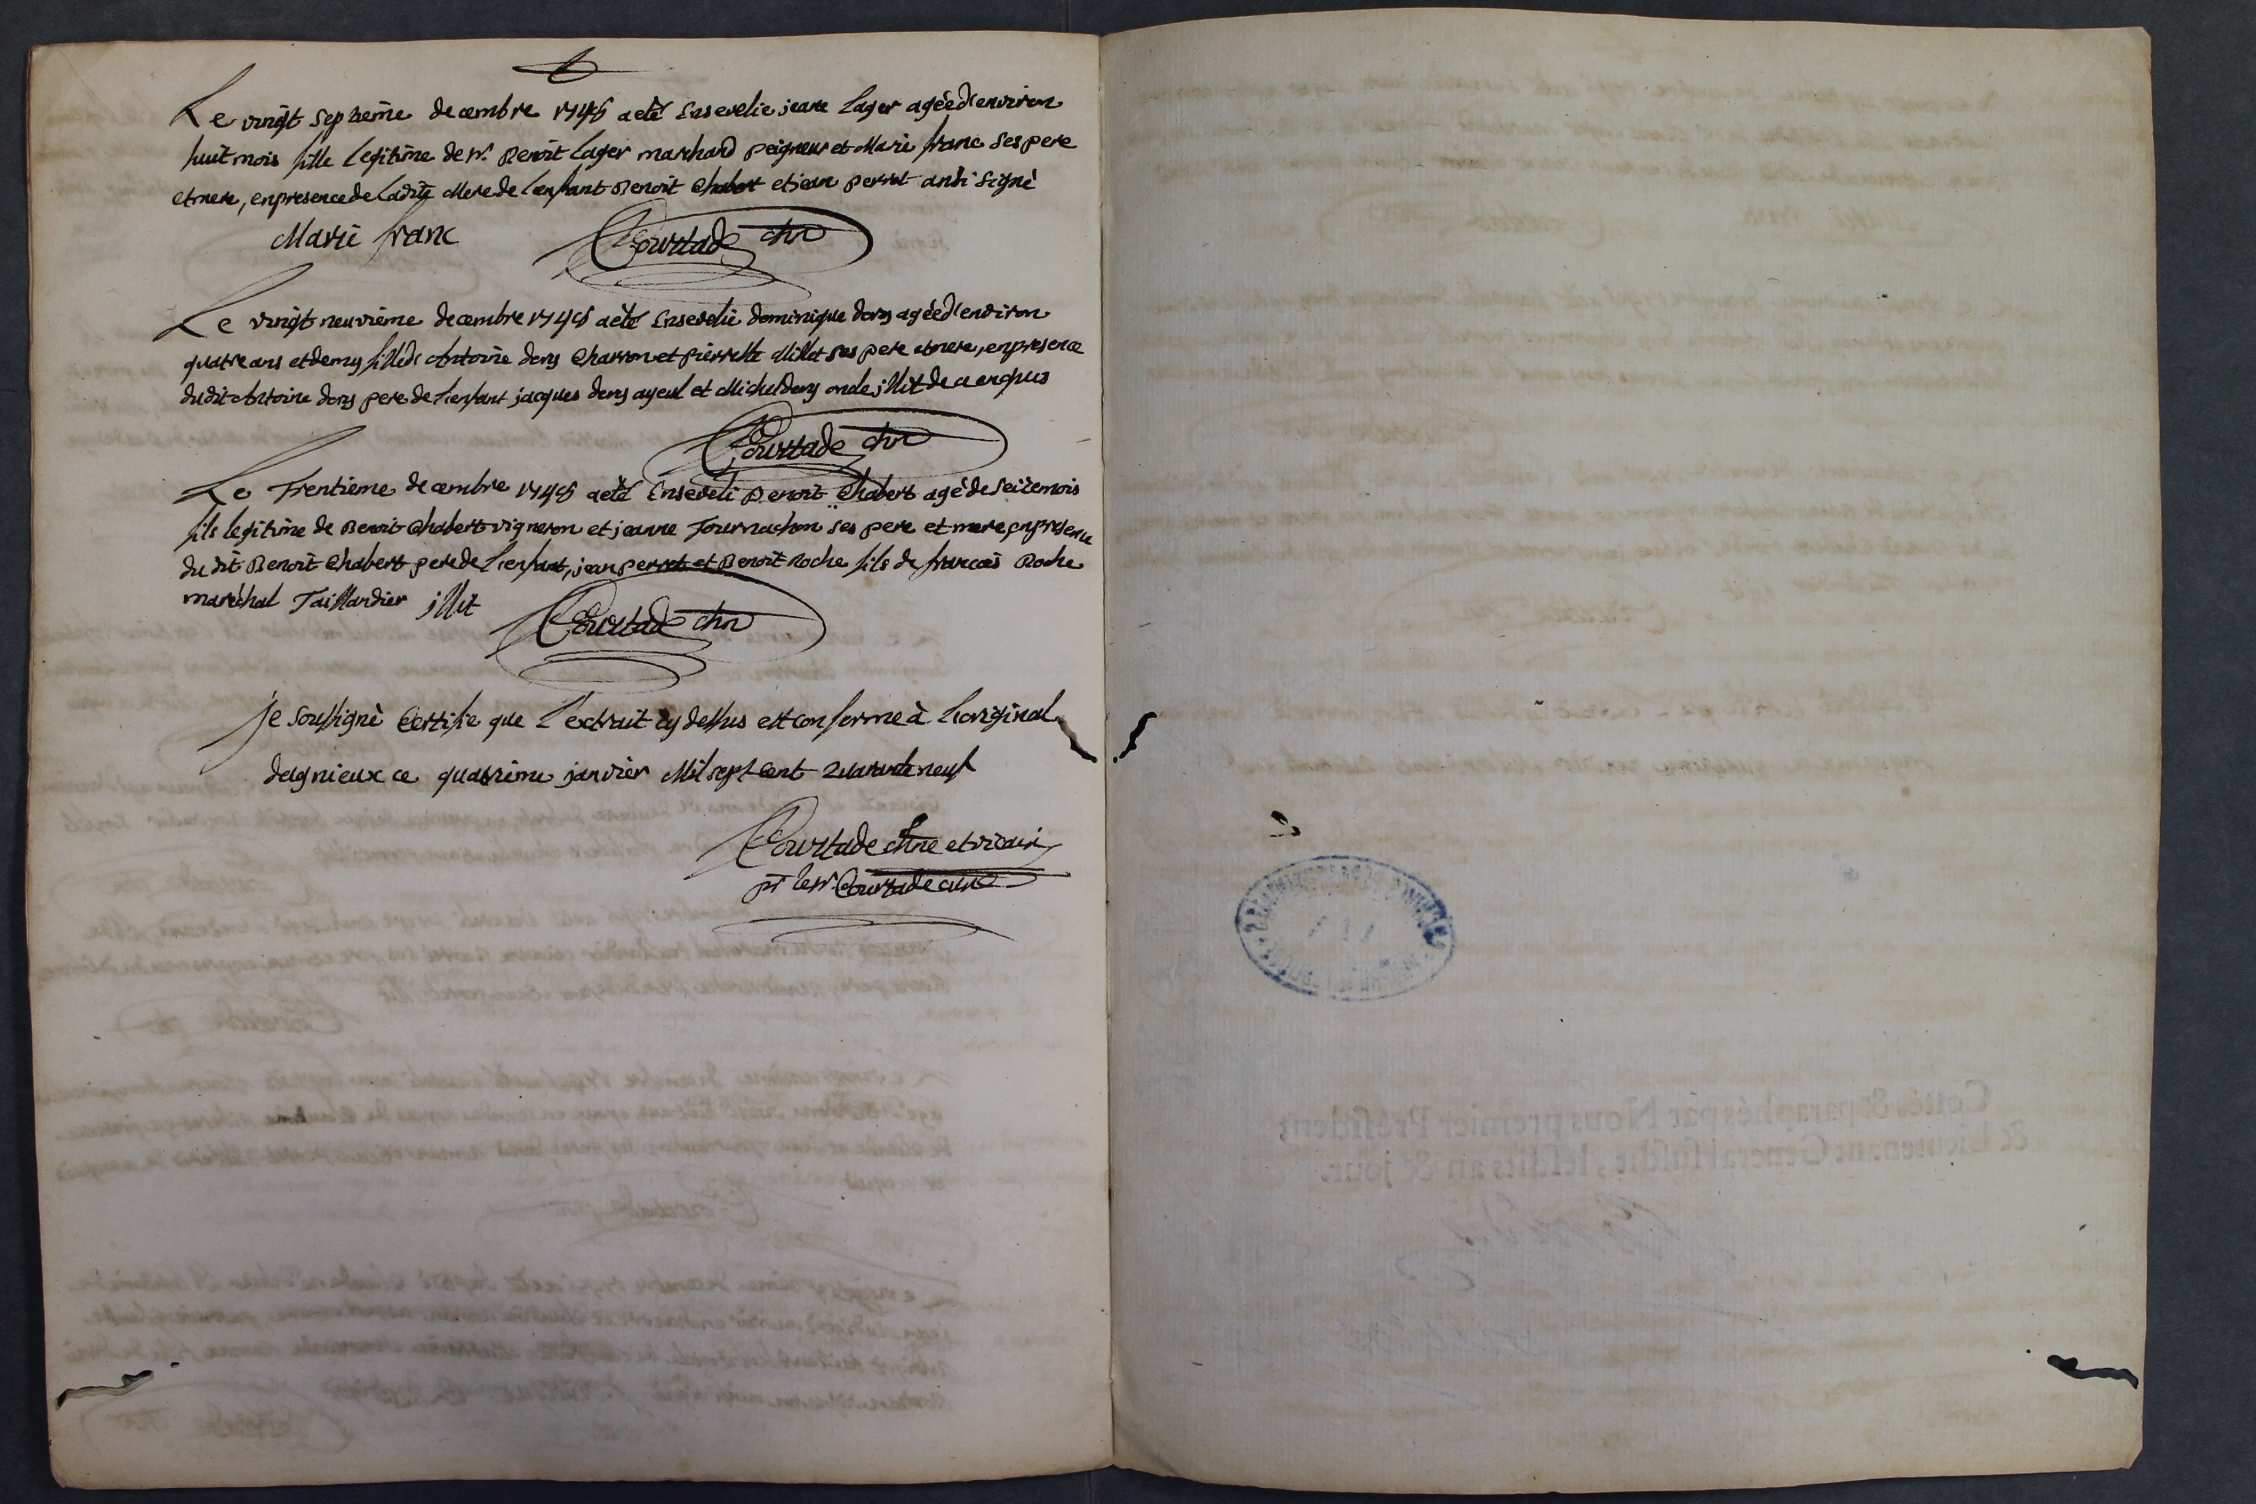 Le vingt septieme decembre 1748 a eté Ensevelie jeane Lager agéed'environ
huit mois fille legitime de sr. Benoit Lager marchand peigneur et Marie franc ses pere
et mere, en presence de Ladite Mere de Lenfant Benoit Chabert et jean perret ansi signé
Marie franc Courtade chne
Le vingt neuvieme decembre 1748 a eté Ensevelie dominique derys agéed'environ
quatre ans et demy fille de Antoine derys Charron et pierrette Millet ses pere et mere, en presence
dudit Antoine derys pere de Lenfant jacques derys ayeul et Michel derys oncle illit de ce enquis
Courtade chne
Le Trentieme decembre 1748 a eté Enseveli Benoit Chabert agé de seizemois
fils legitime de Benoit Chabert vigneron et jeanne Tournachon ses pere et mere, en presence
du dit Benoit Chabert pere de Lenfant, jean perret et Benoit Roche fils de francois Roche
maréchal Taillandier illit
Courtade chne
je soussigné Certifie que L'extrait cy dessus est conforme à Loriginal
dagnieux ce quatrieme janvier Mil sept Cent Quarante neuf
Courtade chne et vicair
pr le sr Courtade curé
Cottés & paraphés par Nous premier Président
& Lieutenant Général susdit, lesdits an & jour.